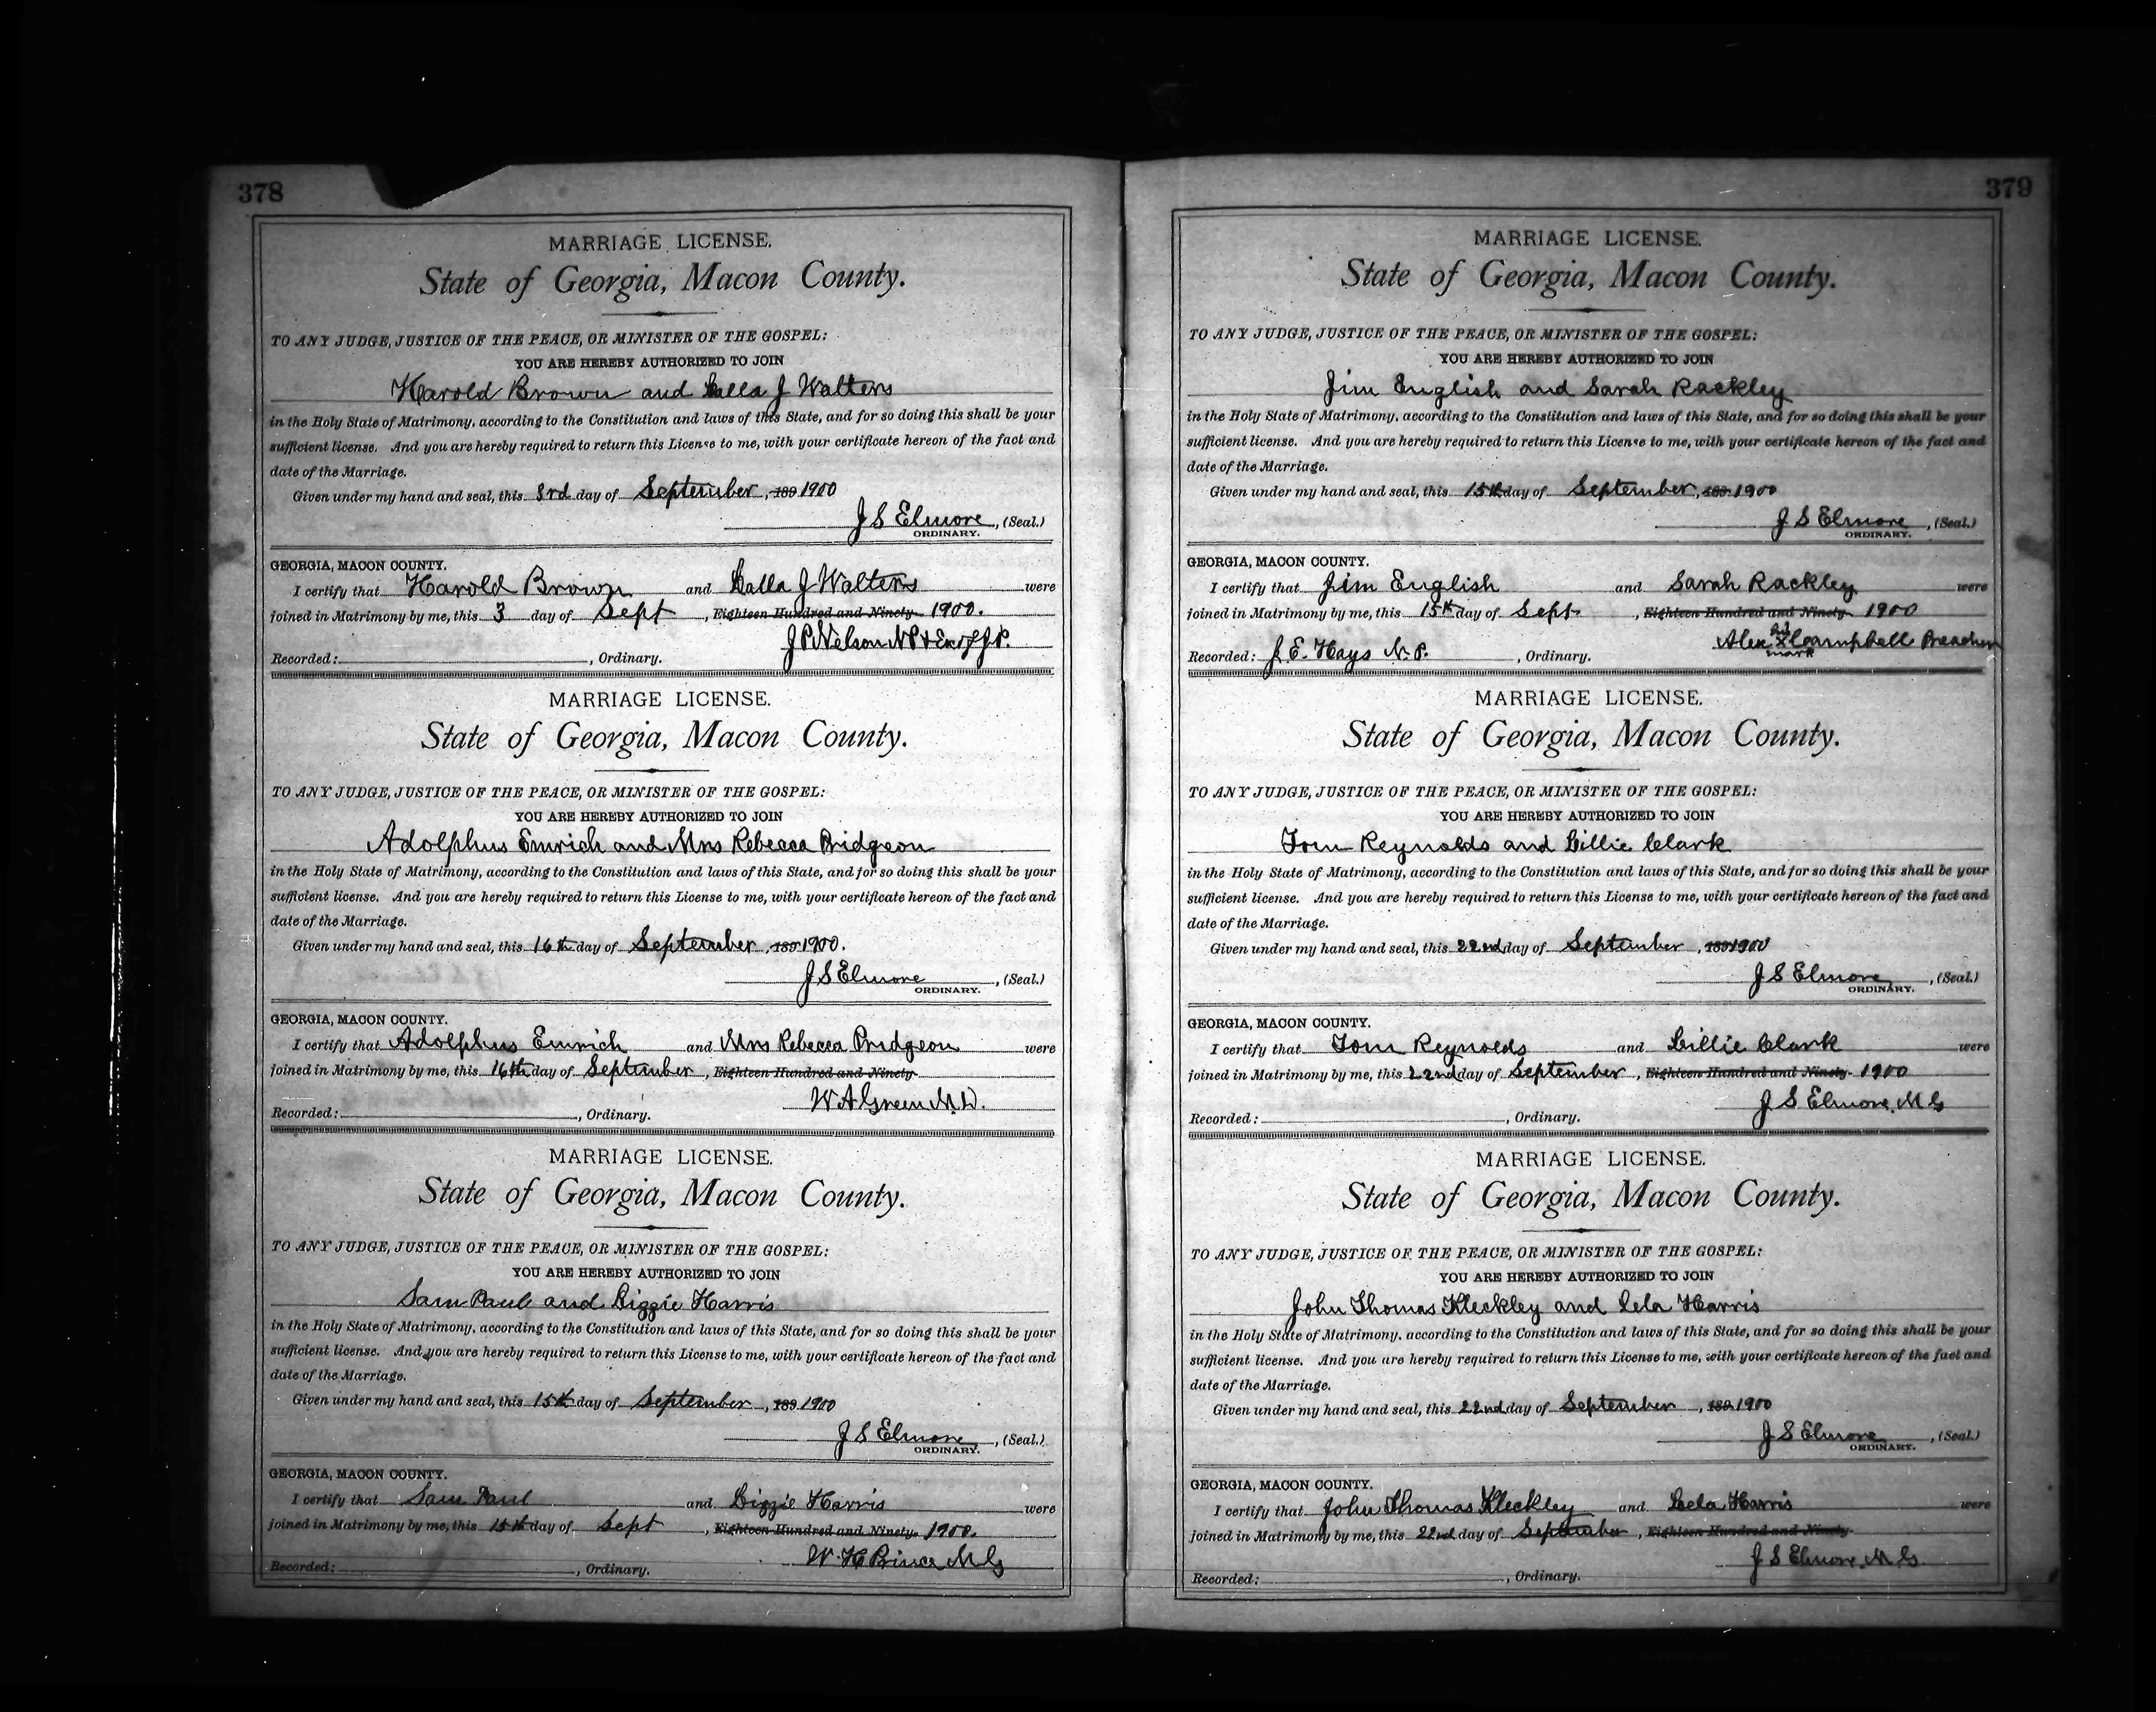 378
MARRIAGE LICENSE.
State of Georgia, Macon County.
TO ANY JUDGE, JUSTICE OF THE PEACE, OR MINISTER OF THE GOSPEL:
YOU ARE HEREBY AUTHORIZED TO JOIN
Harold Brown and Lalla J Walters
in the Holy State of Matrimony, according to the Constitution and laws of this State, and for so doing this shall be your
sufficient license. And you are hereby required to return this License to me, with your certificate hereon of the fact and
date of the Marriage.
Given under my hand and seal, this 3rd day of September, 189 1900
J S Elmore, (Seal.)
ORDINARY.
GEORGIA, MACON COUNTY.
I certify that Harold Brown and Lalla J Walters were
joined in Matrimony by me, this 3 day of Sept, Eighteen Hundred and Ninety 1900.
J P Nelson NP & Exoff J.P.
Recorded: , Ordinary.
MARRIAGE LICENSE.
State of Georgia, Macon County.
TO ANY JUDGE, JUSTICE OF THE PEACE, OR MINISTER OF THE GOSPEL:
YOU ARE HEREBY AUTHORIZED TO JOIN
Adolphus Emrich and Mrs Rebecca Pridgeon
in the Holy State of Matrimony, according to the Constitution and laws of this State, and for so doing this shall be your
sufficient license. And you are hereby required to return this License to me, with your certificate hereon of the fact and
date of the Marriage.
Given under my hand and seal, this 16th day of September, 189 1900.
J S Elmore, (Seal.)
ORDINARY.
GEORGIA, MACON COUNTY.
I certify that Adolphus Emrich and Mrs Rebecca Pridgeon were
joined in Matrimony by me, this 16th day of September, Eighteen Hundred and Ninety
W A Green M.D.
Recorded: , Ordinary.
MARRIAGE LICENSE.
State of Georgia, Macon County.
TO ANY JUDGE, JUSTICE OF THE PEACE, OR MINISTER OF THE GOSPEL:
YOU ARE HEREBY AUTHORIZED TO JOIN
Sam Paul and Lizzie Harris
in the Holy State of Matrimony, according to the Constitution and laws of this State, and for so doing this shall be your
sufficient license. And you are hereby required to return this License to me, with your certificate hereon of the fact and
date of the Marriage.
Given under my hand and seal, this 15th day of September, 189 1900
J S Elmore, (Seal.)
ORDINARY.
GEORGIA, MACON COUNTY.
I certify that Sam Paul and Lizzie Harris were
joined in Matrimony by me, this 15th day of Sept, Eighteen Hundred and Ninety 1900.
W. H M G
Recorded: , Ordinary.
379
MARRIAGE LICENSE.
State of Georgia, Macon County.
TO ANY JUDGE, JUSTICE OF THE PEACE, OR MINISTER OF THE GOSPEL:
YOU ARE HEREBY AUTHORIZED TO JOIN
Jim English and Sarah Rackley
in the Holy State of Matrimony, according to the Constitution and laws of this State, and for so doing this shall be your
sufficient license. And you are hereby required to return this License to me, with your certificate hereon of the fact and
date of the Marriage.
Given under my hand and seal, this 15th day of September, 189 1900
J S Elmore, (Seal.)
ORDINARY.
GEORGIA, MACON COUNTY.
I certify that Jim English and Sarah Rackley were
joined in Matrimony by me, this 15th day of Sept, Eighteen Hundred and Ninety 1900
his
Alex X Campbell Preacher
mark
Recorded: J. E. Hays N. P., Ordinary.
MARRIAGE LICENSE.
State of Georgia, Macon County.
TO ANY JUDGE, JUSTICE OF THE PEACE, OR MINISTER OF THE GOSPEL:
YOU ARE HEREBY AUTHORIZED TO JOIN
Tom Reynolds and Lillie Clark
in the Holy State of Matrimony, according to the Constitution and laws of this State, and for so doing this shall be your
sufficient license. And you are hereby required to return this License to me, with your certificate hereon of the fact and
date of the Marriage.
Given under my hand and seal, this 22nd day of September, 189 1900
J S Elmore, (Seal.)
ORDINARY.
GEORGIA, MACON COUNTY.
I certify that Tom Reynolds and Lillie Clark were
joined in Matrimony by me, this 22nd day of September, Eighteen Hundred and Ninety 1900
J S Elmore M G
Recorded: , Ordinary.
MARRIAGE LICENSE.
State of Georgia, Macon County.
TO ANY JUDGE, JUSTICE OF THE PEACE, OR MINISTER OF THE GOSPEL:
YOU ARE HEREBY AUTHORIZED TO JOIN
John Thomas Kleckley and Lela Harris
in the Holy State of Matrimony, according to the Constitution and laws of this State, and for so doing this shall be your
sufficient license. And you are hereby required to return this License to me, with your certificate hereon of the fact and
date of the Marriage.
Given under my hand and seal, this 22nd day of September, 189 1900
J S Elmore, (Seal.)
ORDINARY.
GEORGIA, MACON COUNTY.
I certify that John Thomas Kleckley and Lela Harris were
joined in Matrimony by me, this 22nd day of September, Eighteen Hundred and Ninety
J S Elmore M.G.
Recorded: , Ordinary.